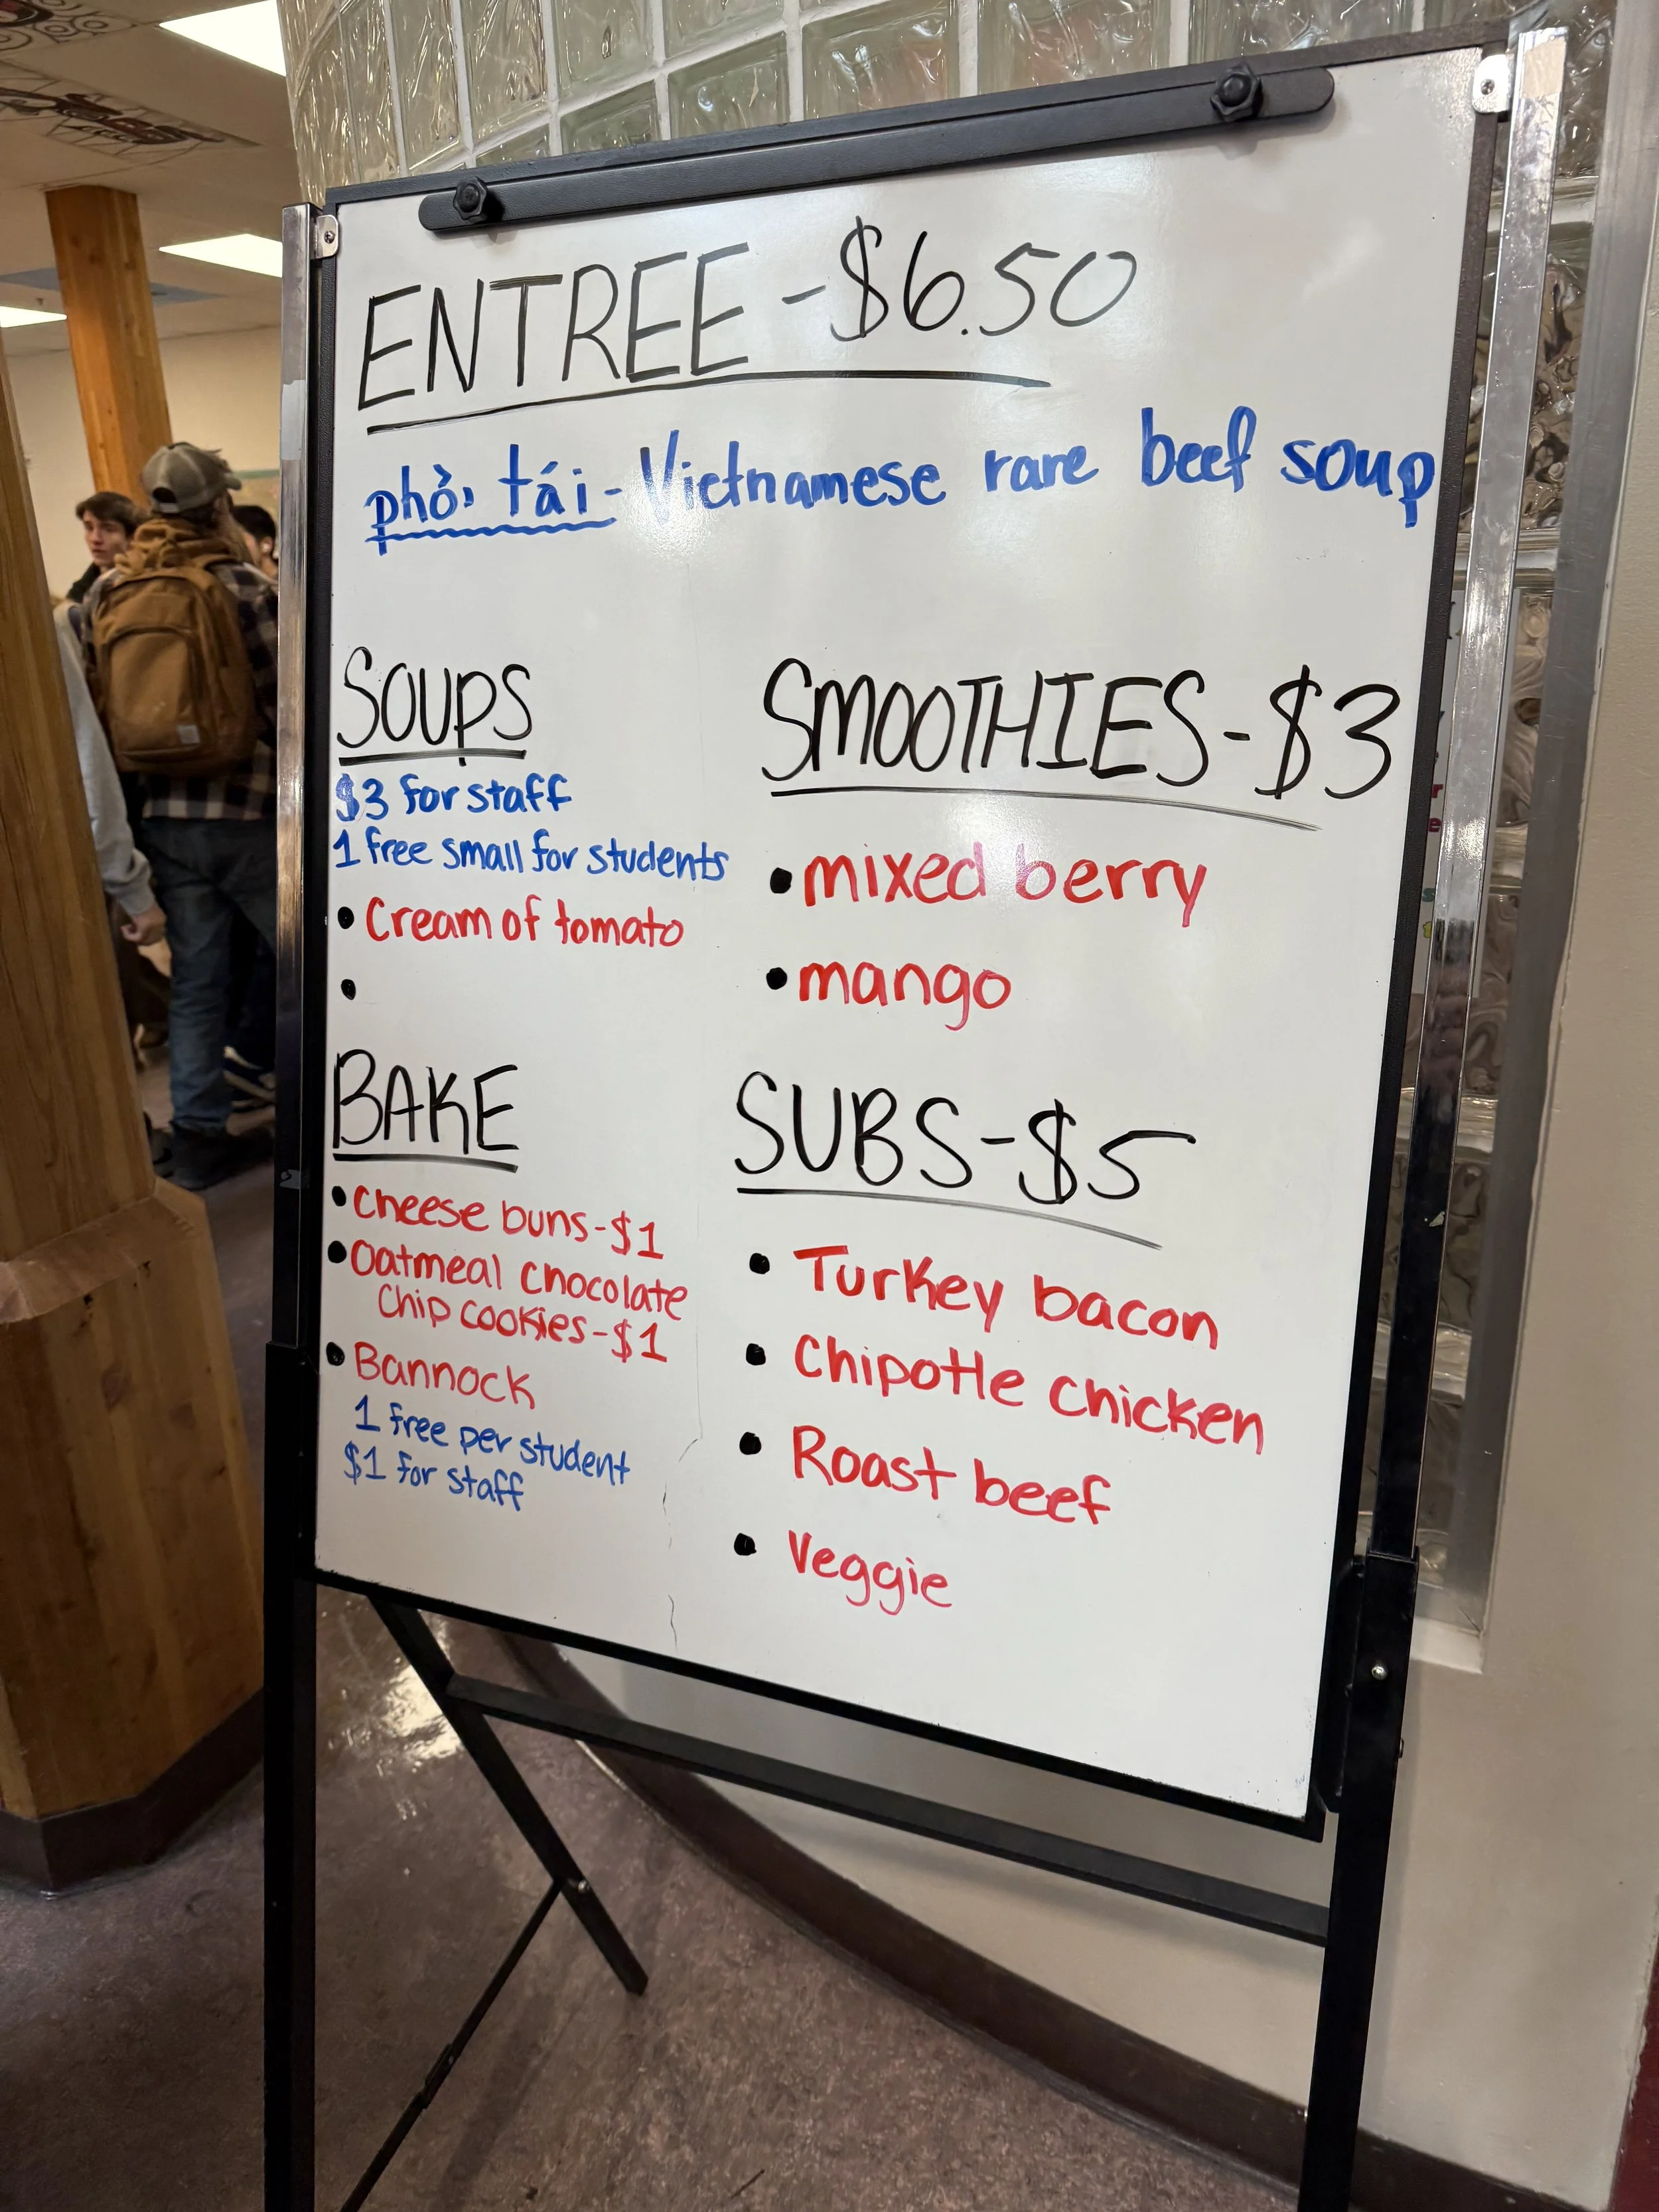 ENTREE - $6.50
phở tái - Vietnamese rare beef soup
SOUPS
$3 for staff
1 free small for students
• Cream of tomato
•
SMOOTHIES - $3
• mixed berry
• mango
BAKE
• Cheese buns - $1
• Oatmeal chocolate
chip cookies - $1
• Bannock
1 free per student
$1 for staff
SUBS - $5
• Turkey bacon
• Chipotle chicken
• Roast beef
• Veggie